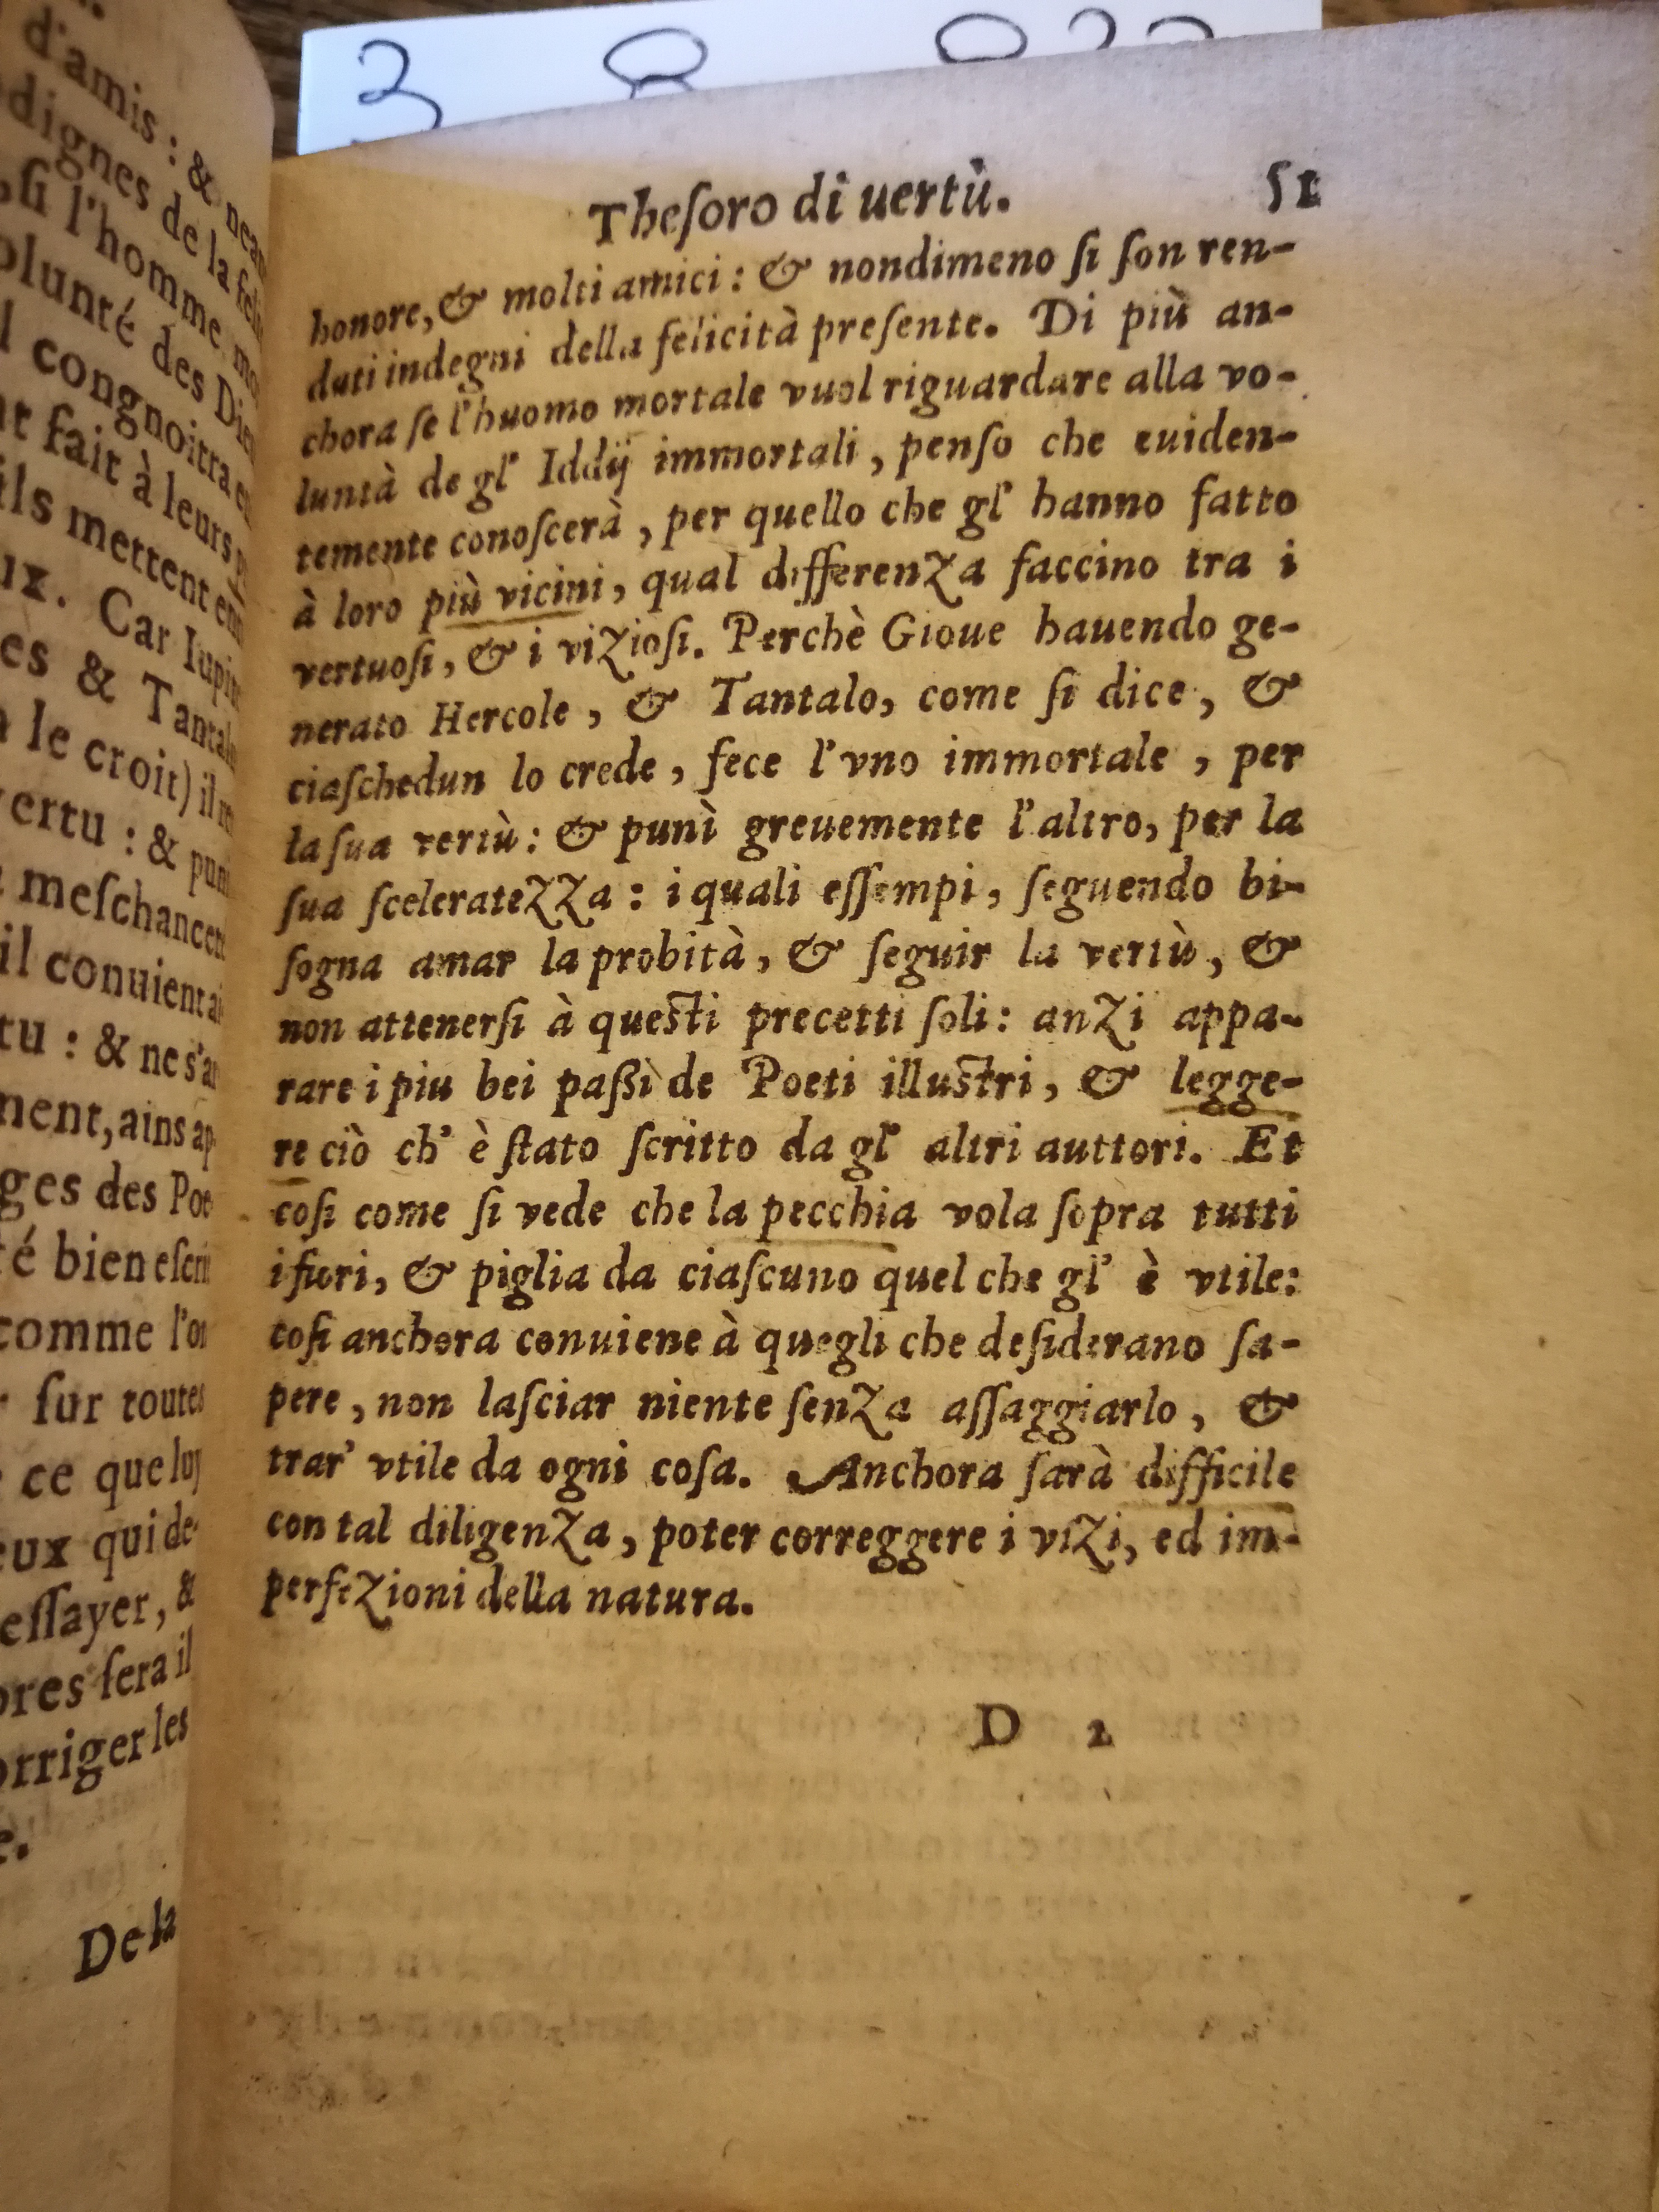 d'amis : & nean
dignes de la feli
si l'homme mo
olunté des Dieu
l congnoitra eu
nt fait à leurs p
ils mettent entr
ux. Car Iupite
es & Tantale
le croit) il
vertu : & puni
meschanceté
il conuient ai
tu : & ne s'ar
ment, ains ap
ges des Poe
té bien escri
comme l'on
sur toutes
ce que luy
eux qui de-
essayer, &
ores sera il
orriger les
e.
De la
3 8
Thesoro di uertù. 51
honore, & molti amici : & nondimeno si son ren-
duti indegni della felicità presente. Di più an-
chora se l'huomo mortale vuol riguardare alla vo-
luntà de gl' Iddij immortali, penso che euiden-
temente conoscerà, per quello che gl' hanno fatto
à loro più vicini, qual differenza faccino tra i
vertuosi, & i viziosi. Perchè Gioue hauendo ge-
nerato Hercole, & Tantalo, come si dice, &
ciaschedun lo crede, fece l'vno immortale, per
la sua vertù : & punì greuemente l'altro, per la
sua sceleratezza : i quali essempi, seguendo bi-
sogna amar la probità, & seguir la vertù, &
non attenersi à questi precetti soli : anzi appa-
rare i piu bei passi de Poeti illustri, & legge-
re ciò ch' è stato scritto da gl' altri auttori. Et
cosi come si vede che la pecchia vola sopra tutti
i fiori, & piglia da ciascuno quel che gl' è vtile:
cosi anchora conuiene à quegli che desiderano sa-
pere, non lasciar niente senza assaggiarlo, &
trar' vtile da ogni cosa. Anchora sarà difficile
con tal diligenza, poter correggere i vizi, ed im-
perfezioni della natura.
D 2